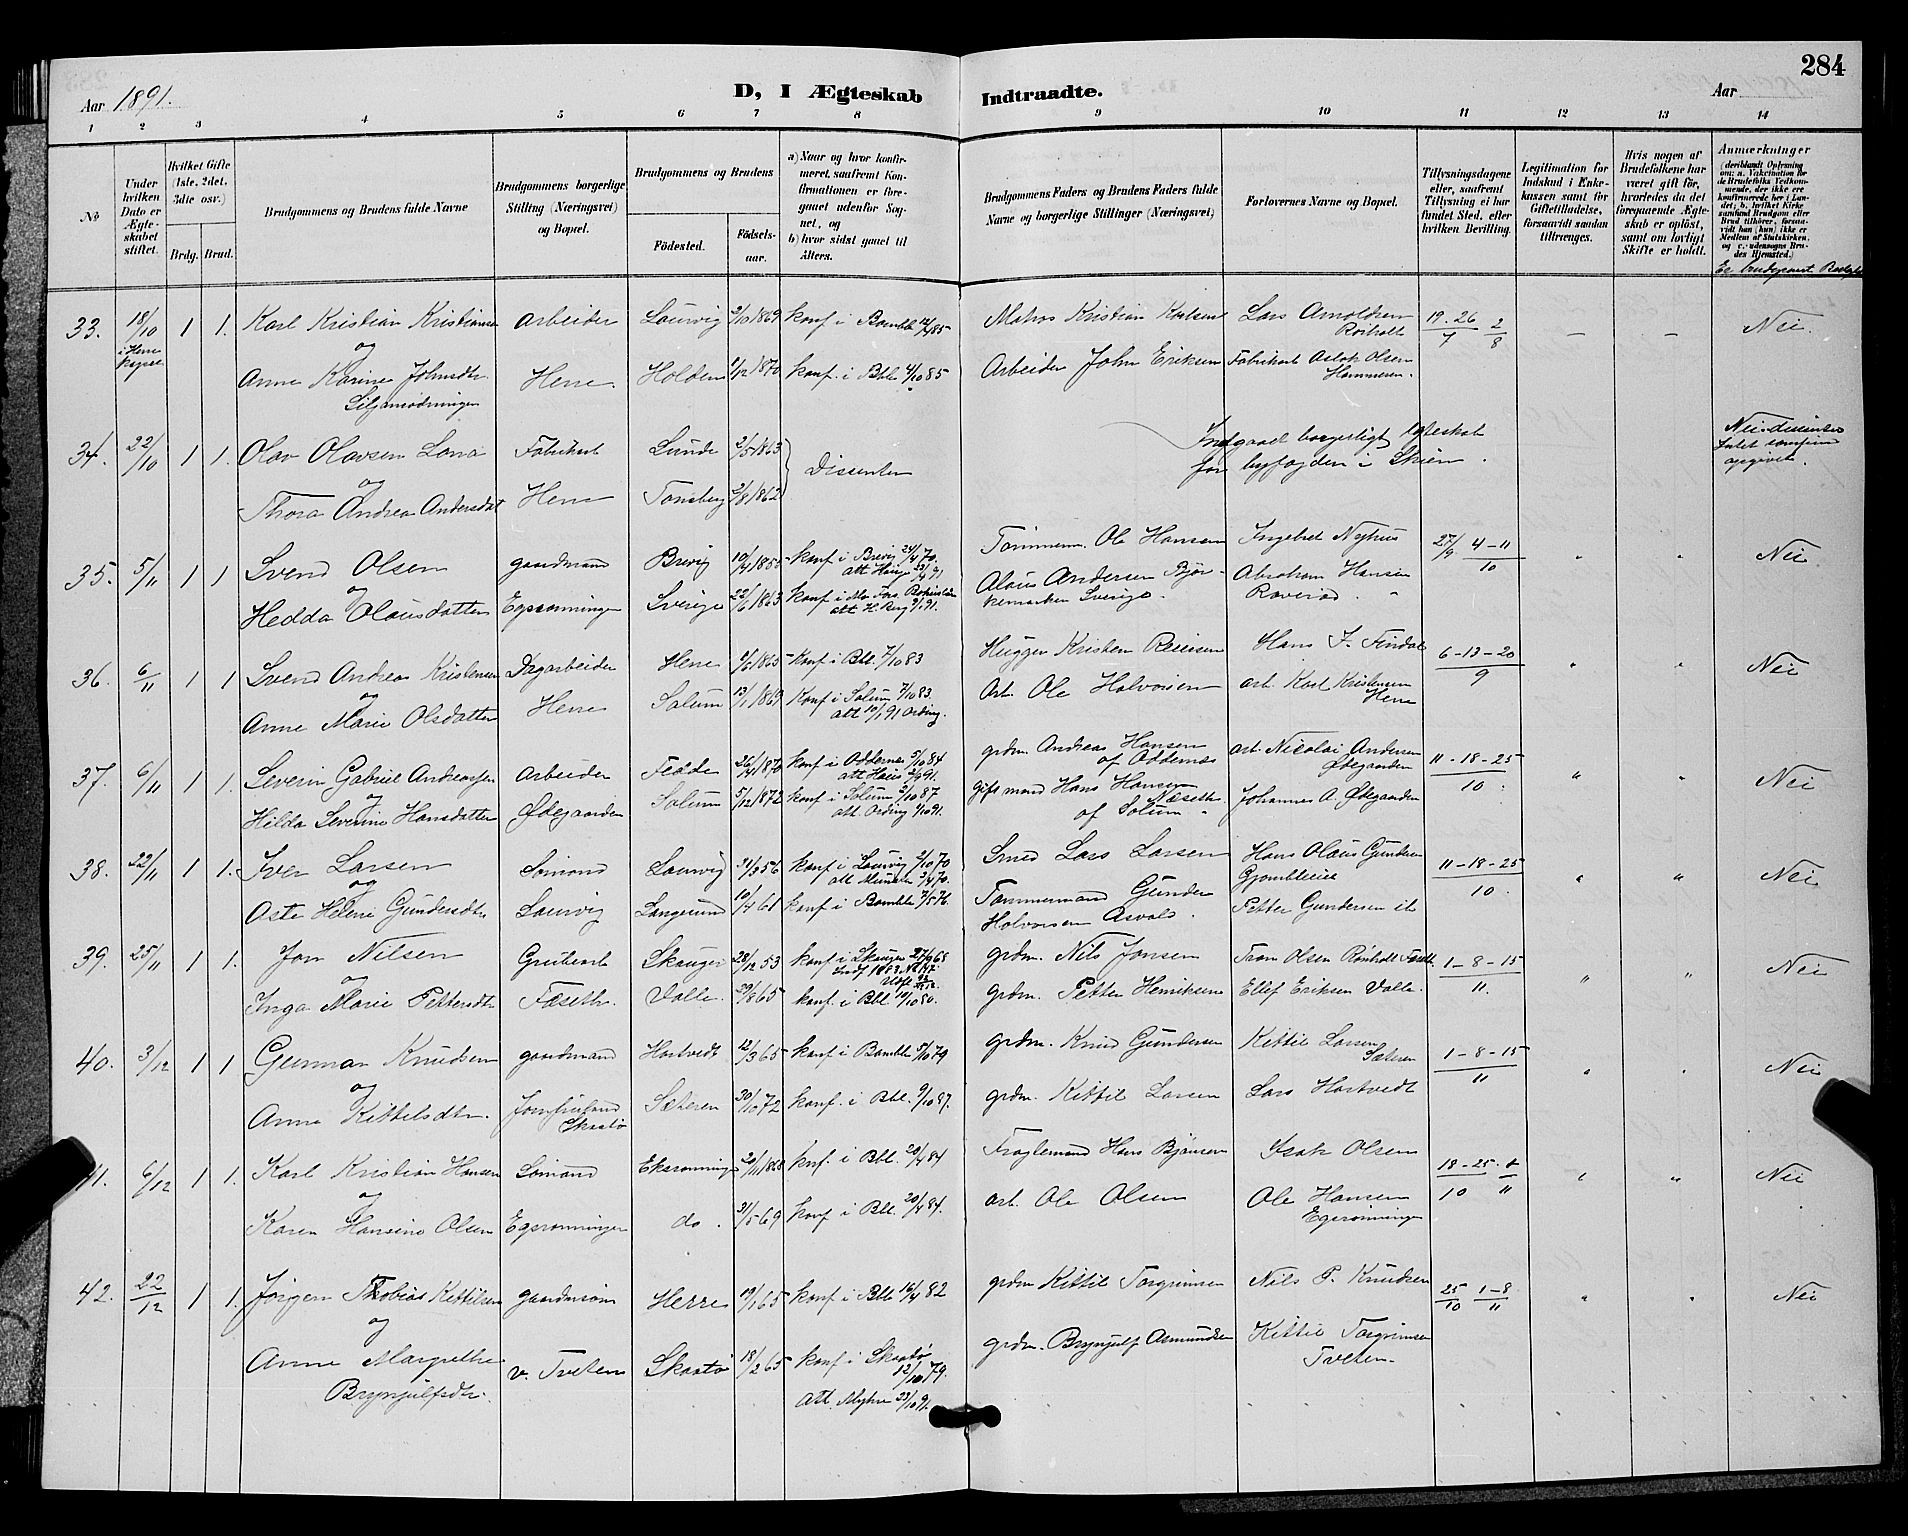 284
Aar 1891.
D, I Ægteskab Indtraadte.
Aar
1 2 3 4 5 6 7 8 9 10 11 12 13 14
No
Under hvilken Dato er Ægteskabet stiftet.
Hvilket Gifte (1ste, 2det, 3die osv.)
Brdg. Brud.
Brudgommens og Brudens fulde Navne
Brudgommens borgerlige Stilling (Næringsvei) og Bopæl.
Brudgommens og Brudens
Födested.
Födsels-aar.
a) Naar og hvor konfirmeret, saafremt Konfirmationen er foregaaet udenfor Sognet, og
b) hvor sidst gaaet til Alters.
Brudgommens Faders og Brudens Faders fulde Navne og borgerlige Stillinger (Næringsvei)
Forlovernes Navne og Bopæl.
Tillysningsdagene eller, saafremt Tillysning ei har fundet Sted, efter hvilken Bevilling.
Legitimation for Indskud i Enkekassen samt for Giftetilladelse, forsaavidt saadan tiltrænges.
Hvis nogen af Brudefolkene har været gift för, hvorledes da det foregaaende Ægteskab er oplöst, samt om lovligt Skifte er holdt.
Anmærkninger
33. 18/10 1 1. Karl Kristian Kristiansen Arbeider Laurvig 2/10 1869 konf i Bamble 12/4 85 Matros Kristian Karlsen Lars Arnoldsen 19. 26 2 — — Nei.
i Herre kapel
og
Rörholt 7 8
Anne Karine Johnsdtr. Herre Holden 1/12 1870 konf. i Bble 4/10 85 Arbeider John Eriksen Fabrikarb Aslak Olsen
Hammeren.
34. 22/10 1 1. Olav Olavsen Lona Fabrikarb Lunde 2/5 1863 Dissenter Indgaaet borgerligt Ægteskab Nei-dissenter
og
for byfogden i Skien. Intet
opgivet.
Thora Andrea Andersdat Herre Tønsberg 2/8 1862
35. 5/11 1 1 Svend Olsen gaardmand Brevig 10/4 1855 konf i Brevig 24/4 70. Tömmerm. Ole Hansen Ingebret Nyhus 27/9 4-11 " " Nei
og
10
Hedda Olausdatter Egsrönningen Sverige 22/6 1863 Olaus Andersen Abraham Hansen
Sverige.
36. 6/11 1 1 Svend Andreas Kristensen Dagarbeider Herre 1/6 1865 Konf i Bbl. 7/10 83 Hugger Kristen Reiersen Hans J. Findal 6-13-20 " " Nei
og
9
Anne Marie Olsdatter Herre Solum 13/1 1869 Konf i Solum 7/10 83. arb. Ole Halvorsen arb. Karl Kristensen
att 10/1 91 Ording. Herre
37. 6/11 1 1. Severin Gabriel Andreassen Arbeider Fedde 26/4 1870 konf i Oddernes 5/10 84 grdm. Andreas Hansen arb. Nicolai Andersen 11-18-25 " " Nei
og
af Oddernes Ødegaarden 10
Hilda Severine Hansdatter Ødegaarden Solum 5/12 1872 konf i Solum 2/10 87 gift mand Hans Hansen Johannes A. Ødegaarden
Næseth
att. Ording 1/10 91. af Solum
38. 22/11 1 1. Iver Larsen Sömand Laurvig 31/3 56 konf i Laurvig 2/10 70 Smed Lars Larsen Hans Olaus Gundersen 11-18-25 " " Nei
og
10
Aste Helene Gundersdtr Laurvig Langesund 10/4 61 konf i Bamble 7/5 76. Tømmermand Gunder Petter Gundersen ib
Halvorsen Asvald.
39. 25/11 1 1. Jon Nilsen Grubearb Skauger 28/12 53 konf i Skauger 27/9 68 grdm. Nils Jonsen Tron Olsen Rönholt 1-8-15 " " Nei
11.
Inga Marie Pettersdtr Fæseth. Valle. 29/8 65 konf. i Bbl. 10/10 80. grdm. Petter Henriksen Ellef Eriksen Valle.
40. 3/12 1 1 Gunnar Knudsen gaardmand Hartvedt 12/3 65 konf i Bamble 5/10 79 grdm. Knud Gundersen Kittil Larsen 1-8-15 " " Nei
og
Sæteren 11
Anna Kittelsdtr. Jomfruland Sæteren 30/10 72 konf. i Bbl. 9/10 87. grdm. Kittil Larsen Lars Hartvedt
Skaatö
41. 6/12 1 1. Karl Kristian Hansen Sömand Eksrönningen 20/11 1868 knf. i Bbl. 20/4 84 Fraglemand Hans Bjönsen Isak Olsen 18-25. 8 " " Nei
og
10 11
Karen Hansine Olsen Egsrönningen do. 31/5 69 konf i Bbl. 20/4 84. arb. Ole Olsen Ole Hansen
Egsrönningen
42. 22/12 1 1. Jörgen Thobias Kittilsen gaardmand Herre 19/1 65 konf i Bbl. 16/4 82 grdm Kittil Torgrimsen Nils P. Knudsen 25/10 1-8/11 " " Nei
og
Anne Margrethe v. Tveten Skaatö 18/2 65 konf i Skaatö 12/10 79. grdm. Brynjulf Asmundsen Kittil Torgrimsen
Brynjulfsdtr. Att. Myhre 23/10 91. Tveten.